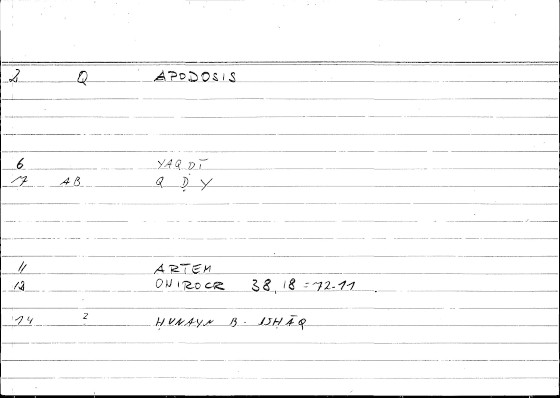 2 Q APODOSIS
6 YAQḌĪ
17 AB Q Ḍ Y
11 ARTEM
12 ONIROCR 38,18 = 72-11
14 2 ḤUNAYN B. ISḤĀQ